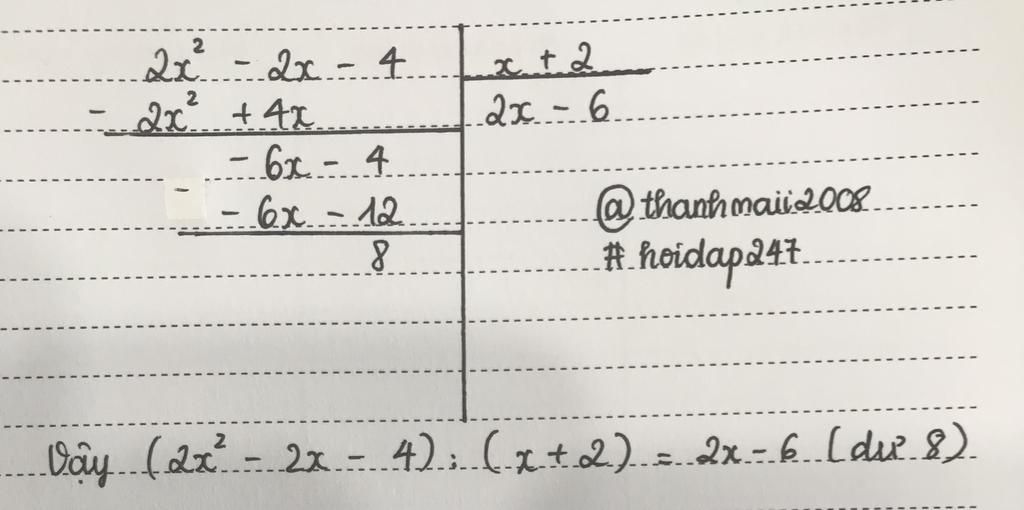 2x² - 2x - 4 | x + 2
- 2x² + 4x | 2x - 6
- 6x - 4
- - 6x - 12
8
@thanhmaii2008
# hoidap247
Vậy (2x² - 2x - 4) : (x + 2) = 2x - 6 (dư 8)